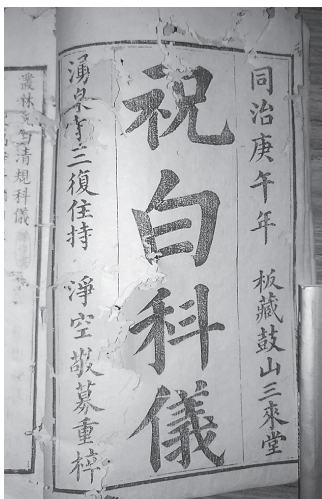 同治庚午年 板藏鼓山三來堂
祝白科儀
湧泉寺三復住持 淨空敬募重梓
叢林
清規科儀